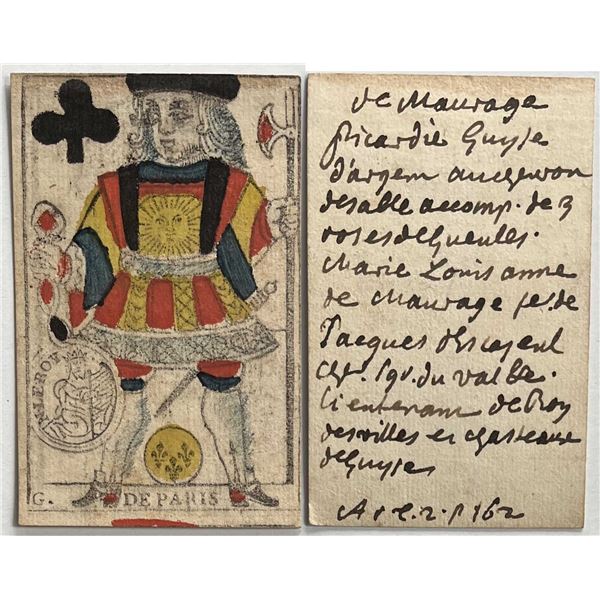 VALERY
G. DE PARIS
de Maurage
picardie Guyse
d'argem aucheuron
desable accomp. de 3
roses de Gueules.
Marie Louis anne
de Maurage fe. de
Jacques
cher. sgr. du valbe.
lieutenam de Roy
des villes et chasteaux
de Guyse
A r l. 2. p 162